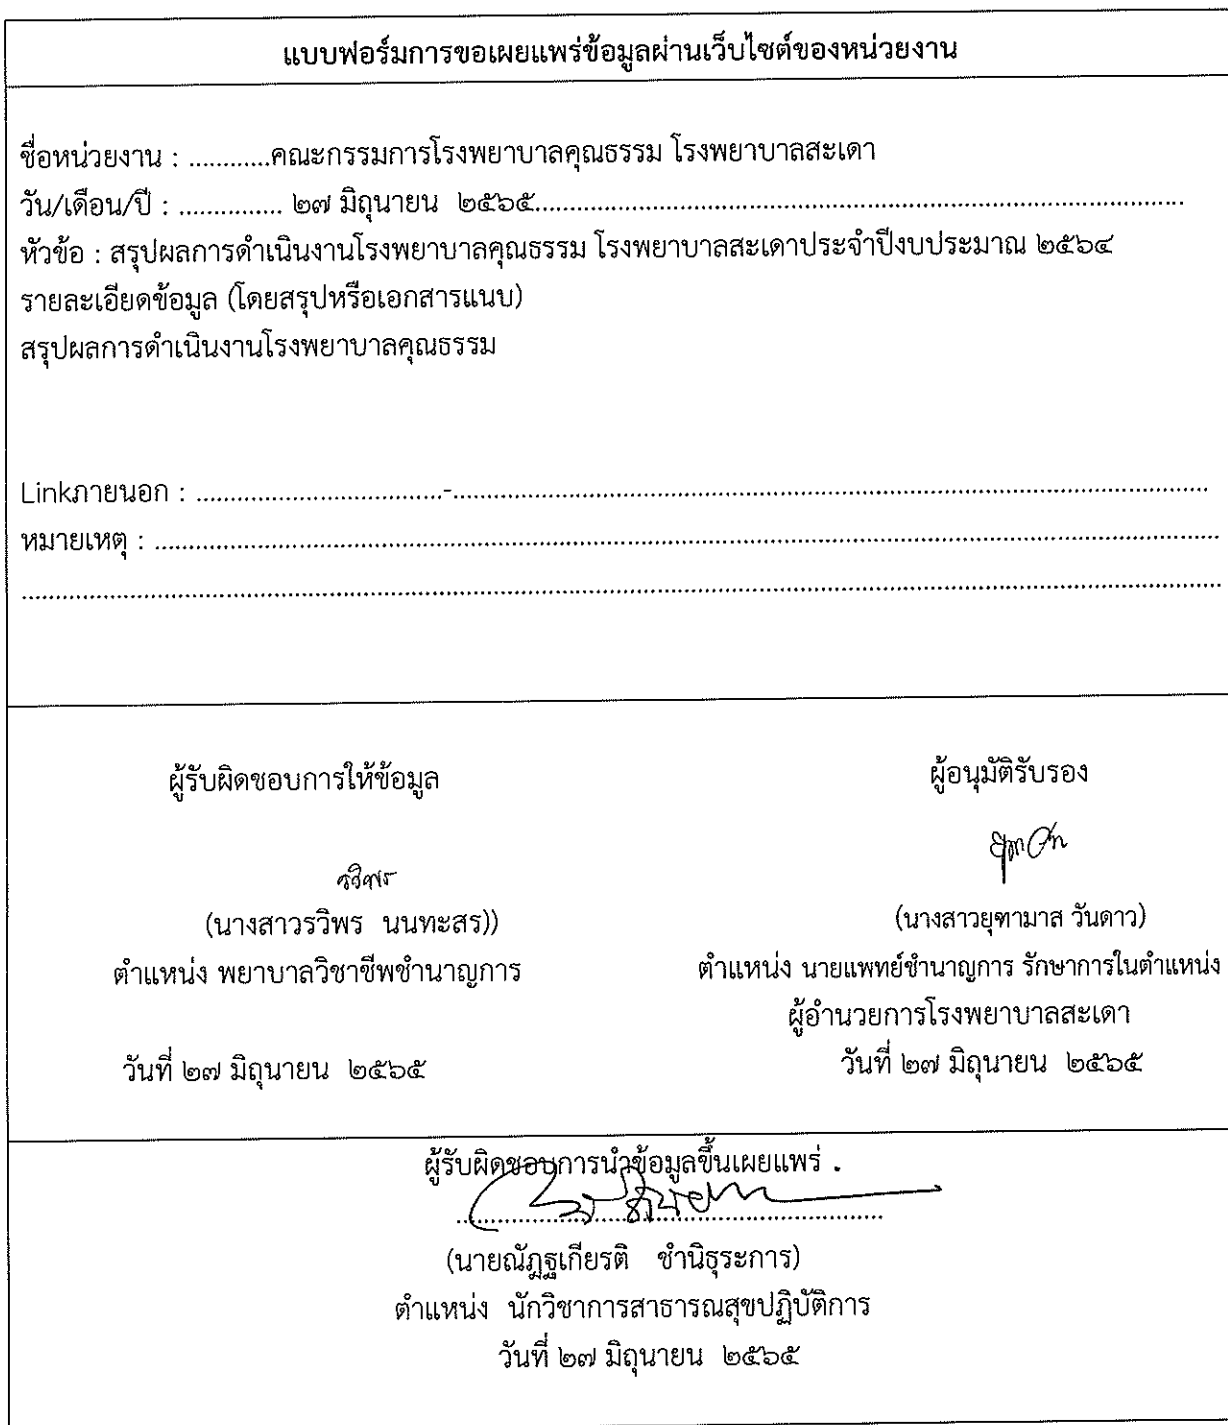 แบบฟอร์มการขอเผยแพร่ข้อมูลผ่านเว็บไซต์ของหน่วยงาน
ชื่อหน่วยงาน : ............คณะกรรมการโรงพยาบาลคุณธรรม โรงพยาบาลสะเดา
วัน/เดือน/ปี : ............... ๒๗ มิถุนายน ๒๕๖๕...............................................................................................
หัวข้อ : สรุปผลการดำเนินงานโรงพยาบาลคุณธรรม โรงพยาบาลสะเดาประจำปีงบประมาณ ๒๕๖๔
รายละเอียดข้อมูล (โดยสรุปหรือเอกสารแนบ)
สรุปผลการดำเนินงานโรงพยาบาลคุณธรรม
Linkภายนอก : ....................................-...............................................................................................................
หมายเหตุ : ............................................................................................................................................................
................................................................................................................................................................................
ผู้รับผิดชอบการให้ข้อมูล
ผู้อนุมัติรับรอง
รวิพร
(นางสาวรวิพร นนทะสร))
(นางสาวยุฑามาส วันดาว)
ตำแหน่ง พยาบาลวิชาชีพชำนาญการ
ตำแหน่ง นายแพทย์ชำนาญการ รักษาการในตำแหน่ง
ผู้อำนวยการโรงพยาบาลสะเดา
วันที่ ๒๗ มิถุนายน ๒๕๖๕
วันที่ ๒๗ มิถุนายน ๒๕๖๕
ผู้รับผิดชอบการนำข้อมูลขึ้นเผยแพร่ .
(นายณัฏฐเกียรติ ชำนิธุระการ)
ตำแหน่ง นักวิชาการสาธารณสุขปฏิบัติการ
วันที่ ๒๗ มิถุนายน ๒๕๖๕